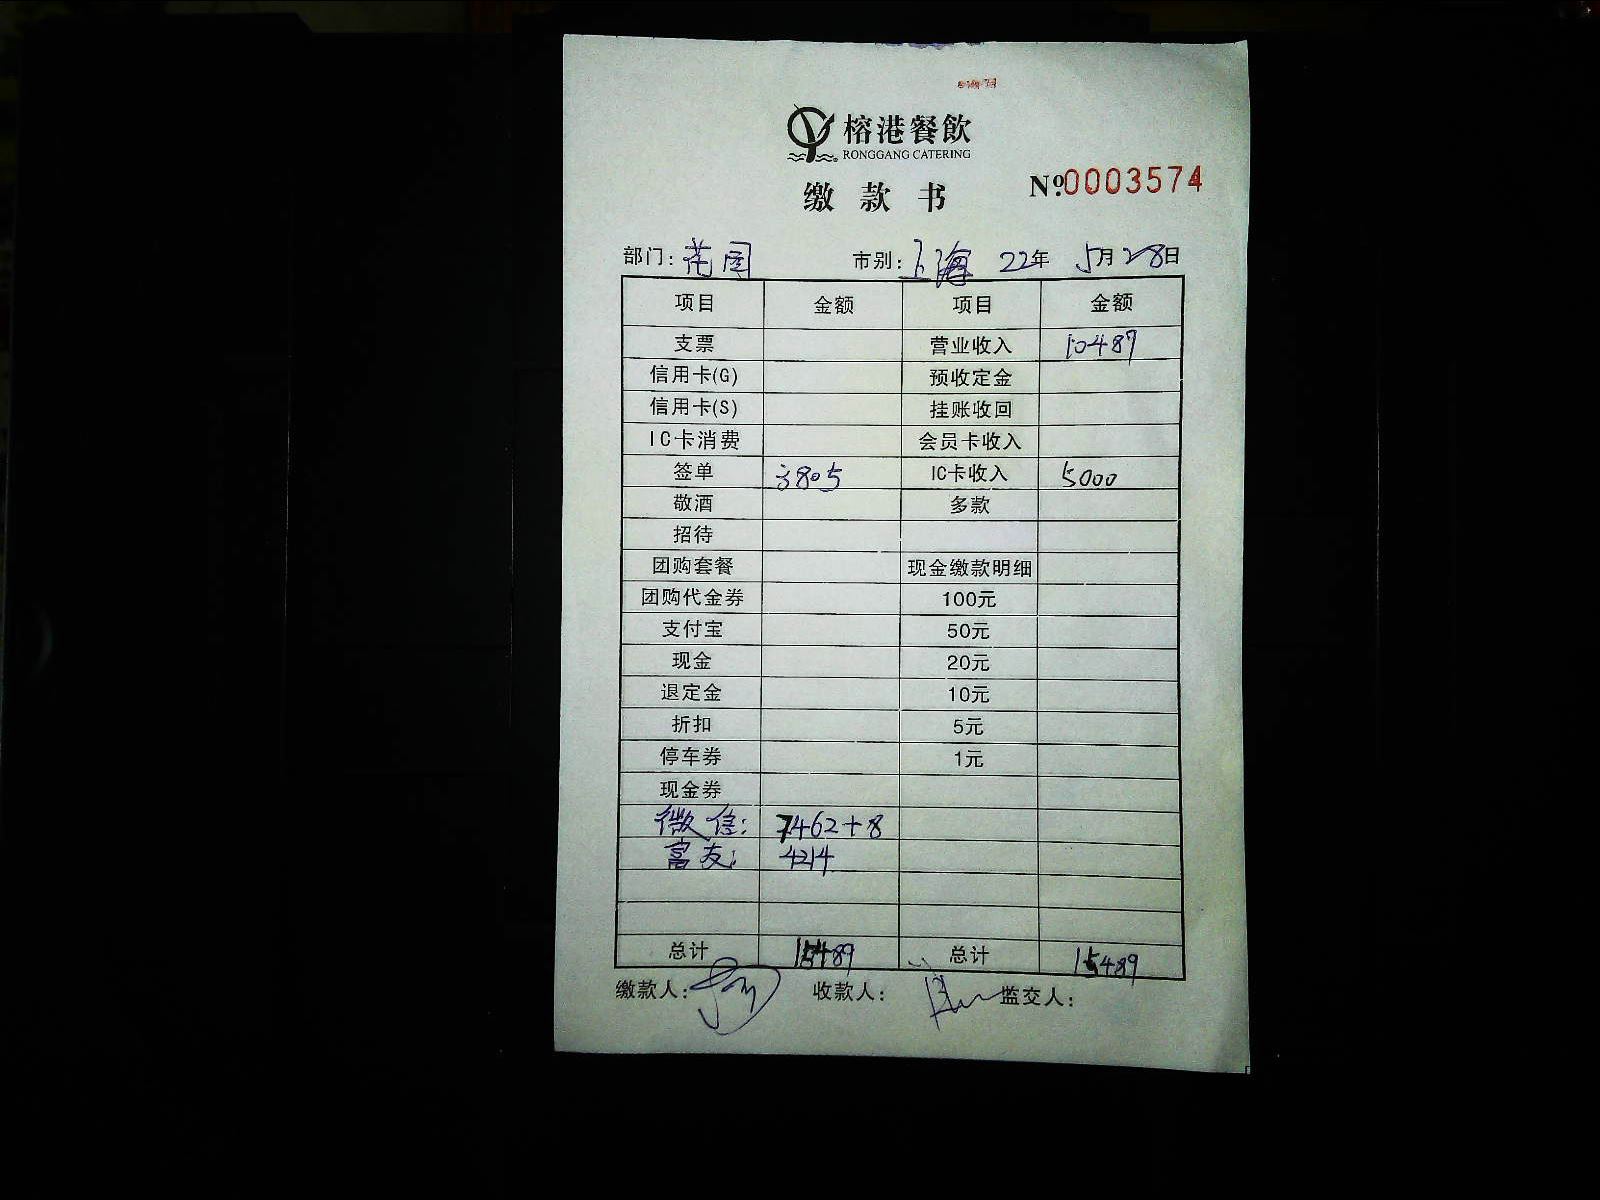 榕港餐飲
RONGGANG CATERING
缴款书 №0003574
部门：花园 市别：上海 22年 5月28日
项目 金额 项目 金额
支票 营业收入 10487
信用卡(G) 预收定金
信用卡(S) 挂账收回
IC卡消费 会员卡收入
签单 3805 IC卡收入 5000
敬酒 多款
招待
团购套餐 现金缴款明细
团购代金券 100元
支付宝 50元
现金 20元
退定金 10元
折扣 5元
停车券 1元
现金券
微信: 7462+8
富友: 4214
总计 15489 总计 15489
缴款人: 收款人: 监交人: